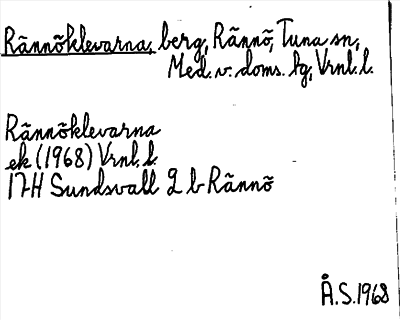 Rännöklevarna, berg, Rännö, Tuna sn,
Med. v. doms. fg, Vrnl. l.
Rännöklevarna
ek (1968) Vrnl. l.
17H Sundsvall 2 b Rännö
Å.S. 1968